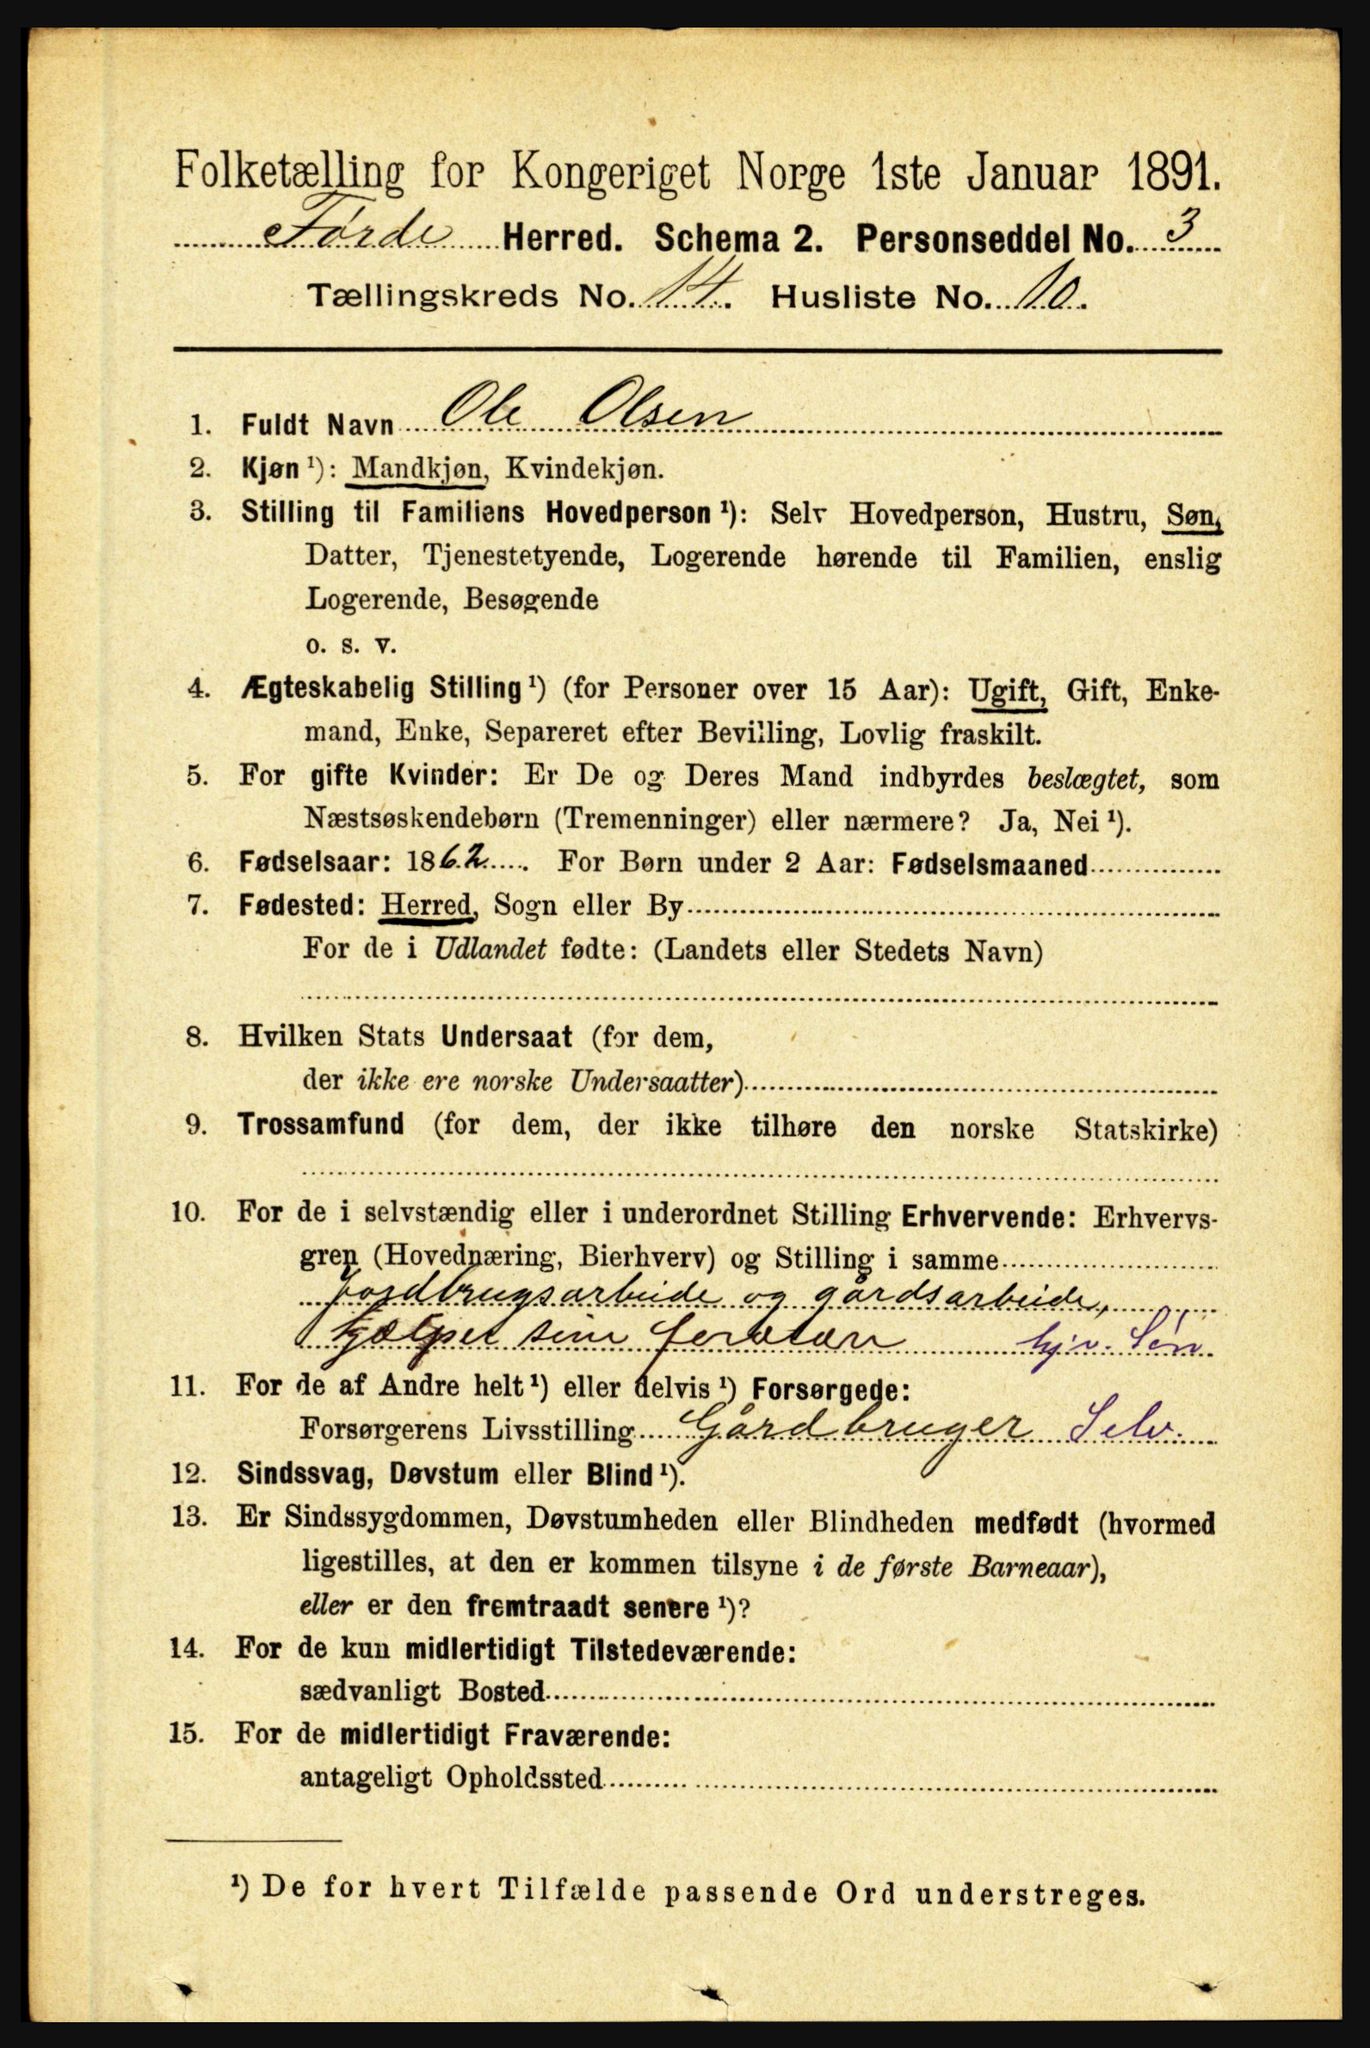 Folketælling for Kongeriget Norge 1ste Januar 1891.
Førde Herred. Schema 2. Personseddel No. 3
Tællingskreds No. 14. Husliste No. 10.
1. Fuldt Navn Ole Olsen
2. Kjøn ¹): Mandkjøn, Kvindekjøn.
3. Stilling til Familiens Hovedperson ¹): Selv Hovedperson, Hustru, Søn,
Datter, Tjenestetyende, Logerende hørende til Familien, enslig
Logerende, Besøgende
o. s. v.
4. Ægteskabelig Stilling ¹) (for Personer over 15 Aar): Ugift, Gift, Enke-
mand, Enke, Separeret efter Bevilling, Lovlig fraskilt.
5. For gifte Kvinder: Er De og Deres Mand indbyrdes beslægtet, som
Næstsøskendebørn (Tremenninger) eller nærmere? Ja, Nei ¹).
6. Fødselsaar: 1862. For Børn under 2 Aar: Fødselsmaaned
7. Fødested: Herred, Sogn eller By
For de i Udlandet fødte: (Landets eller Stedets Navn)
8. Hvilken Stats Undersaat (for dem,
der ikke ere norske Undersaatter)
9. Trossamfund (for dem, der ikke tilhøre den norske Statskirke)
10. For de i selvstændig eller i underordnet Stilling Erhvervende: Erhvervs-
gren (Hovednæring, Bierhverv) og Stilling i samme
jordbrugsarbeide og gårdsarbeide,
hjælper sine forældre hjv. Søn
11. For de af Andre helt ¹) eller delvis ¹) Forsørgede:
Forsørgerens Livsstilling Gårdbruger Selv.
12. Sindssvag, Døvstum eller Blind ¹).
13. Er Sindssygdommen, Døvstumheden eller Blindheden medfødt (hvormed
ligestilles, at den er kommen tilsyne i de første Barneaar),
eller er den fremtraadt senere ¹)?
14. For de kun midlertidigt Tilstedeværende:
sædvanligt Bosted
15. For de midlertidigt Fraværende:
antageligt Opholdssted
¹) De for hvert Tilfælde passende Ord understreges.